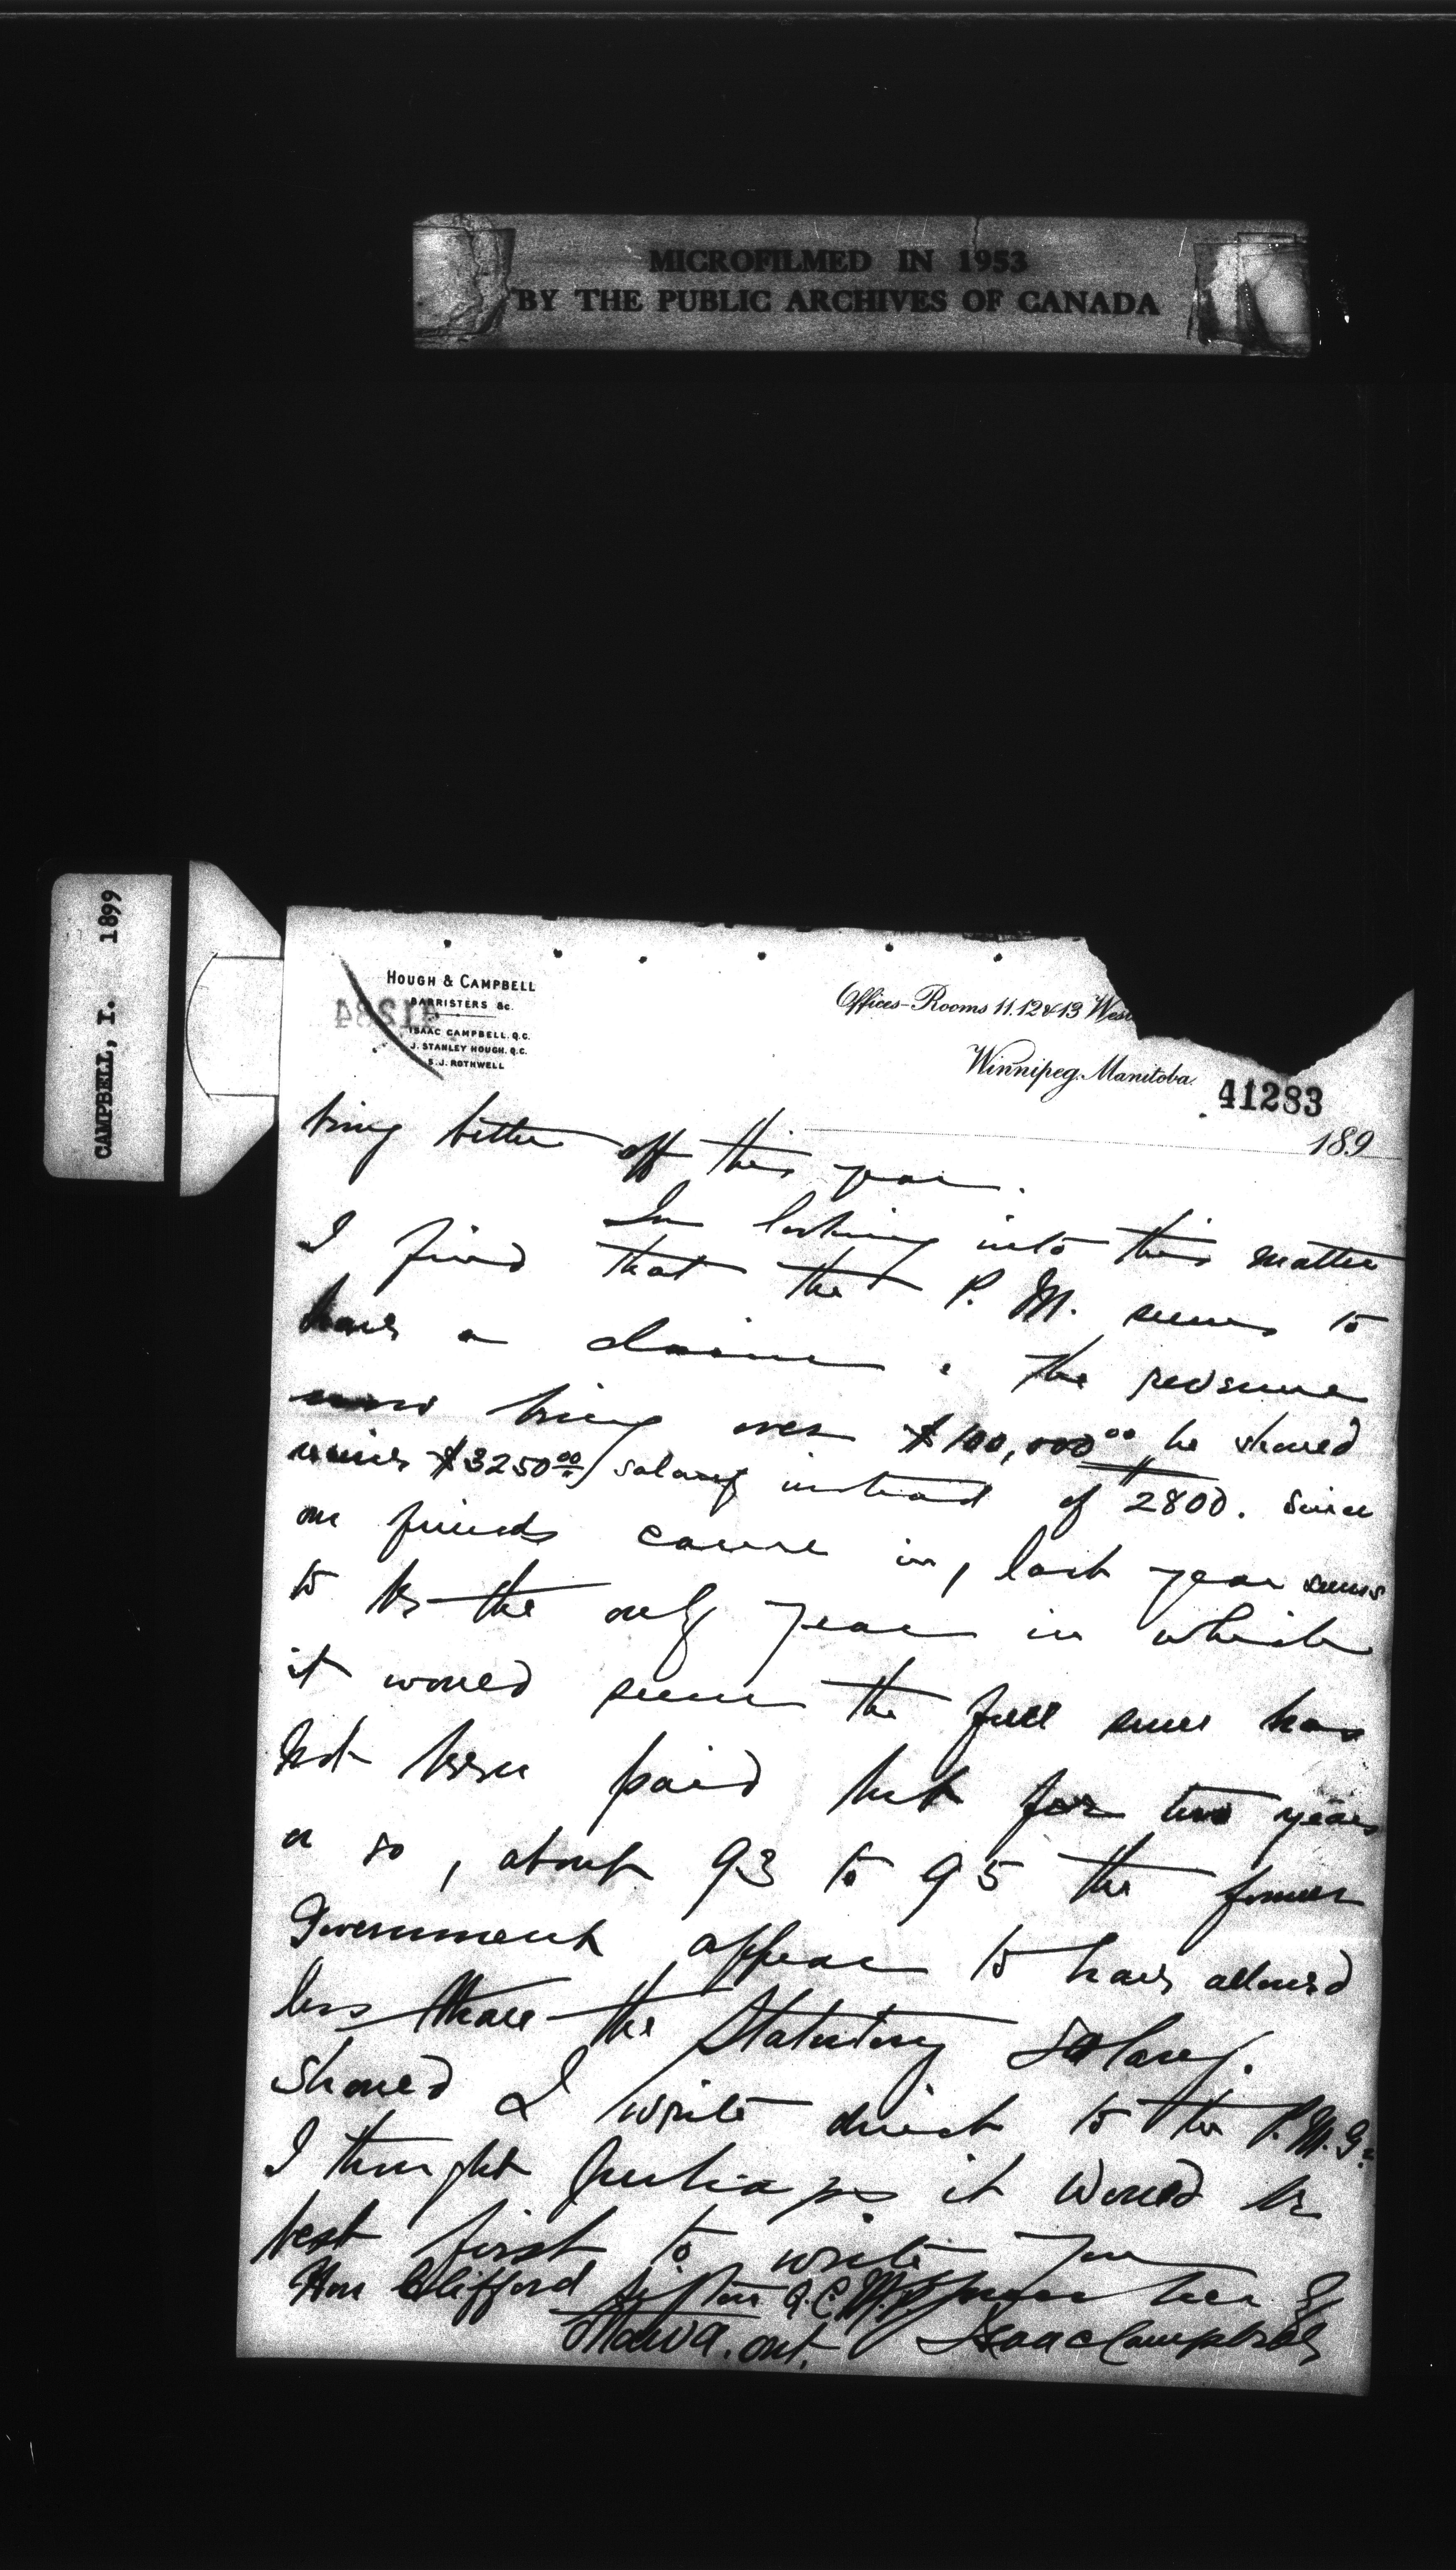 MICROFILMED IN 1953
BY THE PUBLIC ARCHIVES OF CANADA
CAMPBELL, I. 1899
HOUGH & CAMPBELL
BARRISTERS &c.
41284
ISAAC CAMPBELL. Q.C.
J. STANLEY HOUGH. Q.C.
S. J. ROTHWELL
Offices-Rooms 11. 12 & 13 Wes
Winnipeg. Manitoba.
41283
189
being better off this year.
In looking into this matter
I find that the P. M. seems to
have a claim. The revenue
now being over $100,000.00 he should
receive $3250.00 salary instead of 2800. Since
our friends came in, last year seems
to be the only year in which
it would seem the full sum has
not been paid but for two years
or so, about 93 to 95 the former
Government appear to have allowed
less than the Statutory salary.
Should I write direct to the P.M.G.
I thought perhaps it would be
best first to write you
Hon Clifford Sifton Q.C. M.P. Yours
Ottawa. Ont. Isaac Campbell